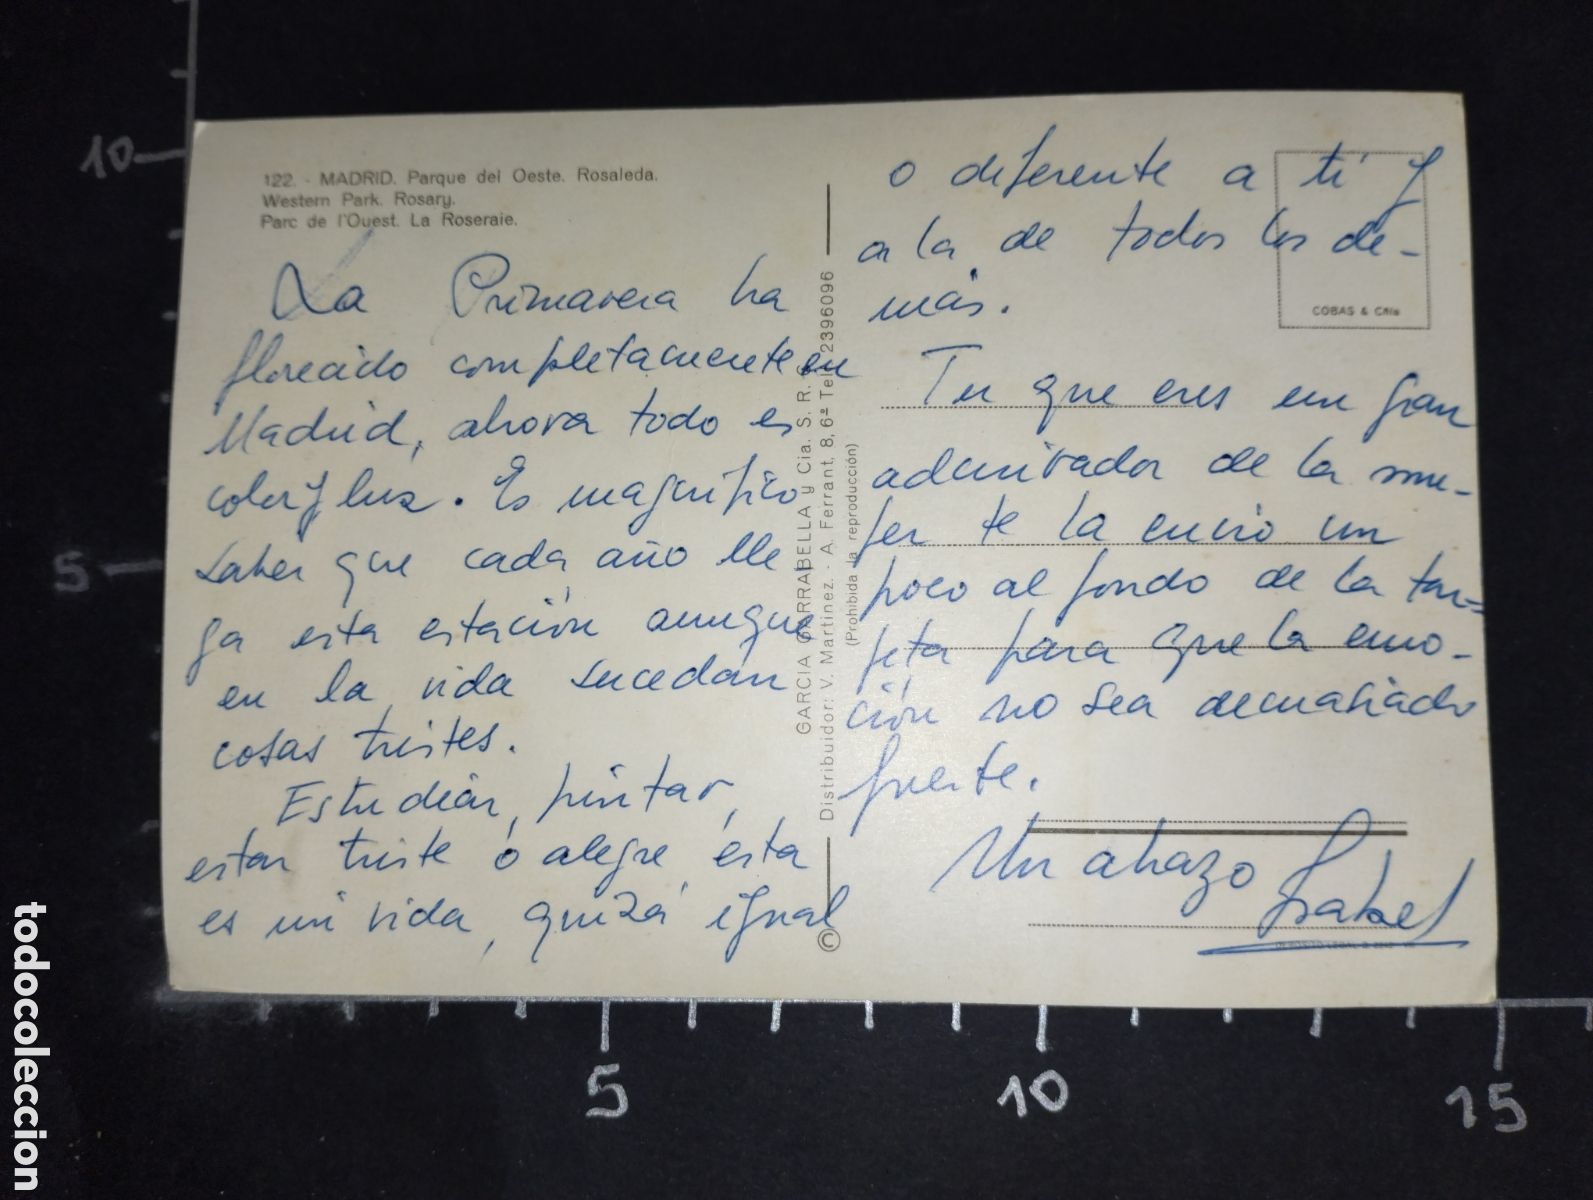 122. - MADRID. Parque del Oeste. Rosaleda.
Western Park. Rosary.
Parc de l'Ouest. La Roseraie.
La Primavera ha
florecido completamente en
Madrid, ahora todo es
color y luz. Es magnífico
saber que cada año lle
ga esta estación aunque
en la vida sucedán
cosas tristes.
Estudiar, pintar,
estar triste o alegre ésta
es mi vida, quizá igual
GARCIA GARRABELLA y Cia. S. R.
Distribuidor: V. Martinez. - A. Ferrant, 8, 6º Tel. 2396096
(Prohibida la reproducción)
©
o diferente a tí y
a la de todos los de-
más.
Tu que eres un gran
admirador de la mu-
jer te la envío un
poco al fondo de la tar-
jeta para que la emo-
ción no sea demasiado
fuerte.
Un abrazo
Isabel
COBAS & Cñia
10
5
5
10
15
todocoleccion